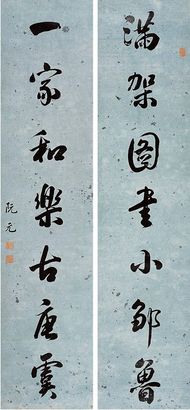 满架图書小邹魯
一家和樂古唐虞
阮元